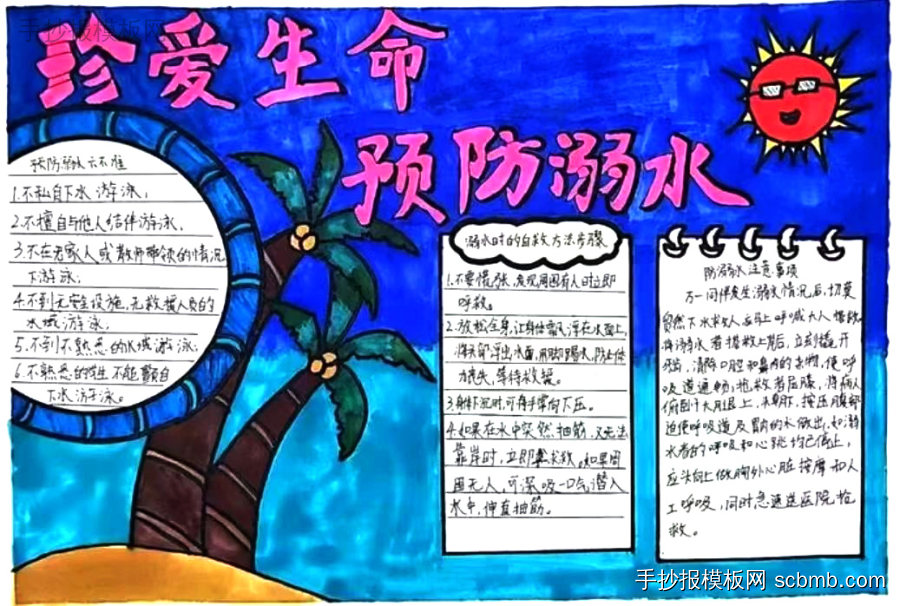 手抄报模板网
珍爱生命
预防溺水
预防溺水六不准
1.不私自下水游泳;
2.不擅自与他人结伴游泳.
3.不在无家人或教师带领的情况
下游泳;
4.不到无安全设施,无救援人员的
水域游泳;
5.不到不熟悉的水域游泳;
6.不熟悉的学生不能擅自
下水游泳。
溺水时的自救方法步骤
1.不要慌张,发现周围有人时立即
呼救。
2.放松全身,让身体飘浮在水面上,
将头部浮出水面,用脚踢水,防止体
力丧失,等待救援。
3.身体下沉时,可将手掌向下压。
4.如果在水中突然抽筋,又无法
靠岸时,立即求救,如果周
围无人,可深吸一口气潜入
水中,伸直抽筋。
防溺水注意事项
万一同伴发生溺水情况后,切莫
贸然下水救人应马上呼喊大人援救.
将溺水者搭救上岸后,立刻撬开
牙齿,清除口腔和鼻内的杂物,使呼
吸道通畅;抢救者屈膝,将病人
俯卧于大腿上,头朝下,按压腹部
迫使呼吸道及胃内的水倒出,如溺
水者的呼吸和心跳均已停止,
应头向上做胸外心脏按摩和人
工呼吸,同时急速送医院抢
救。
手抄报模板网 scbmb.com